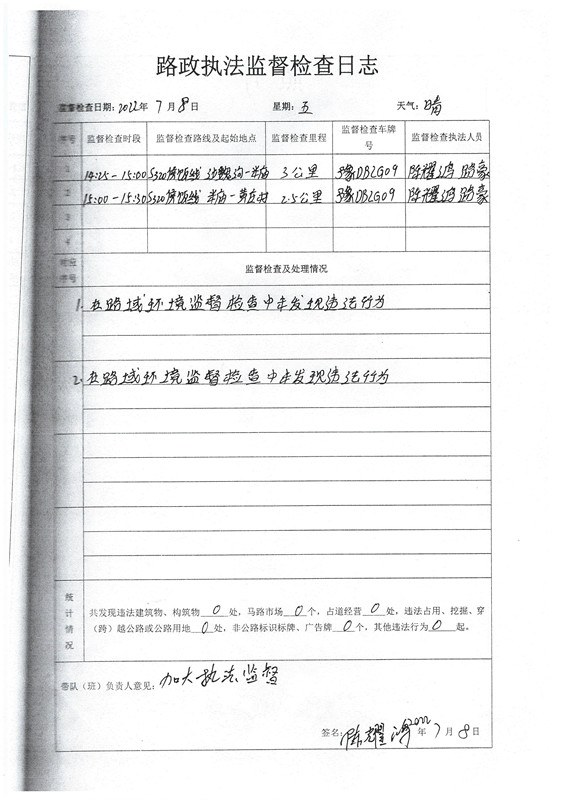 路政执法监督检查日志
监督检查日期：2022年 7月8日 星期：五 天气：晴
序号 监督检查时段 监督检查路线及起始地点 监督检查里程 监督检查车牌号 监督检查执法人员
1 14:25-15:00 S320 线 3公里 豫DB2G09 陈耀鸿 路豪
2 15:00-15:30 S320 线 2.5公里 豫DB2G09 陈耀鸿 路豪
3
4
序号 监督检查及处理情况
1. 在路域环境监督检查中未发现违法行为
2. 在路域环境监督检查中未发现违法行为
统计情况
共发现违法建筑物、构筑物 0 处，马路市场 0 个，占道经营 0 处，违法占用、挖掘、穿
（跨）越公路或公路用地 0 处，非公路标识标牌、广告牌 0 个，其他违法行为 0 起。
带队（班）负责人意见：加大执法监督
签名：陈耀鸿 2022年 7月8日